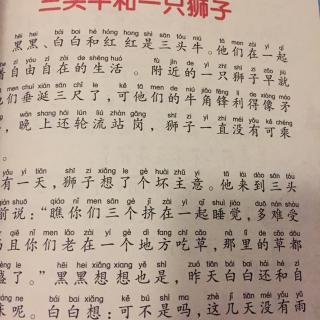 三头牛和一只狮子
hēi hei bái bai hé hóng hong shì sān tóu niú tā men zài yì qǐ
黑黑、白白和红红是三头牛。他们在一起
zhe zì yóu zì zài de shēng huó fù jìn de yì zhī shī zi zǎo jiù
着自由自在的生活。附近的一只狮子早就
men chuí xián sān chǐ le kě tā men de niú jiǎo fēng lì de xiàng máo
们垂涎三尺了，可他们的牛角锋利得像矛
wǎn shang hái lún liú zhàn gǎng shī zi yì zhí méi yǒu kě chéng
，晚上还轮流站岗，狮子一直没有可乘
。
yǒu yì tiān shī zi xiǎng le gè huài zhǔ yi tā lái dào sān tóu
有一天，狮子想了个坏主意。他来到三头
qián shuō qiáo nǐ men sān gè jǐ zài yì qǐ shuì jiào duō nán shòu
前说：“瞧你们三个挤在一起睡觉，多难受
qiě nǐ men lǎo zài yí gè dì fang chī cǎo nà lǐ de cǎo dōu
且你们老在一个地方吃草，那里的草都
le hēi hei xiǎng xiang yě shì zuó tiān bái bai hái zì
了。”黑黑想想也是，昨天白白还和自
ne bái bai xiǎng kě bú shì ma zhè jǐ tiān méi yǒu yǔ
呢。白白想：可不是吗，这几天没有雨